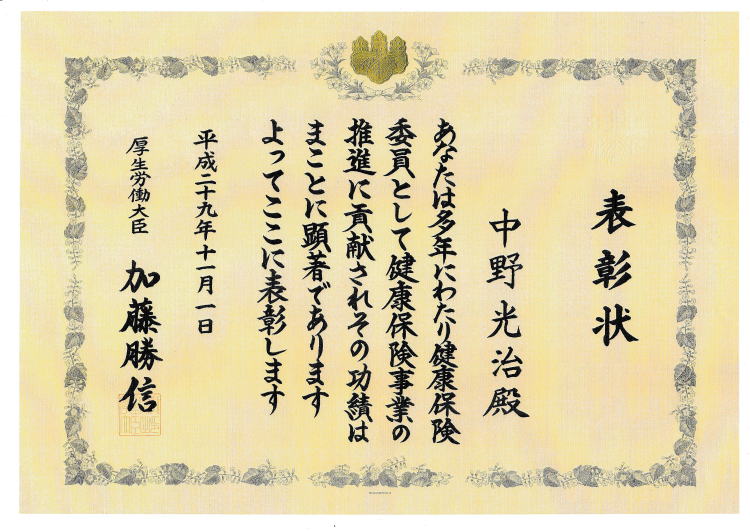 表彰状
中野光治殿
あなたは多年にわたり健康保険
委員として健康保険事業の
推進に貢献されその功績は
まことに顕著であります
よってここに表彰します
平成二十九年十一月一日
厚生労働大臣 加藤勝信